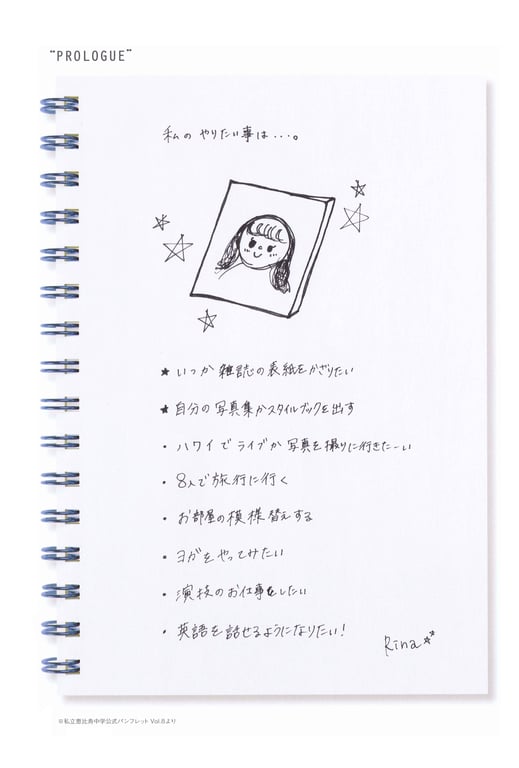 "PROLOGUE"
私の やりたい事は・・・。
★ いつか 雑誌の表紙をかざりたい
★ 自分の写真集かスタイルブックを出す
・ ハワイで ライブか 写真を撮りに行きたーい
・ 8人で旅行に行く
・ お部屋の模様替えする
・ ヨガをやってみたい
・ 演技のお仕事をしたい
・ 英語を話せるようになりたい!
Rina
※私立恵比寿中学公式パンフレット Vol.8より